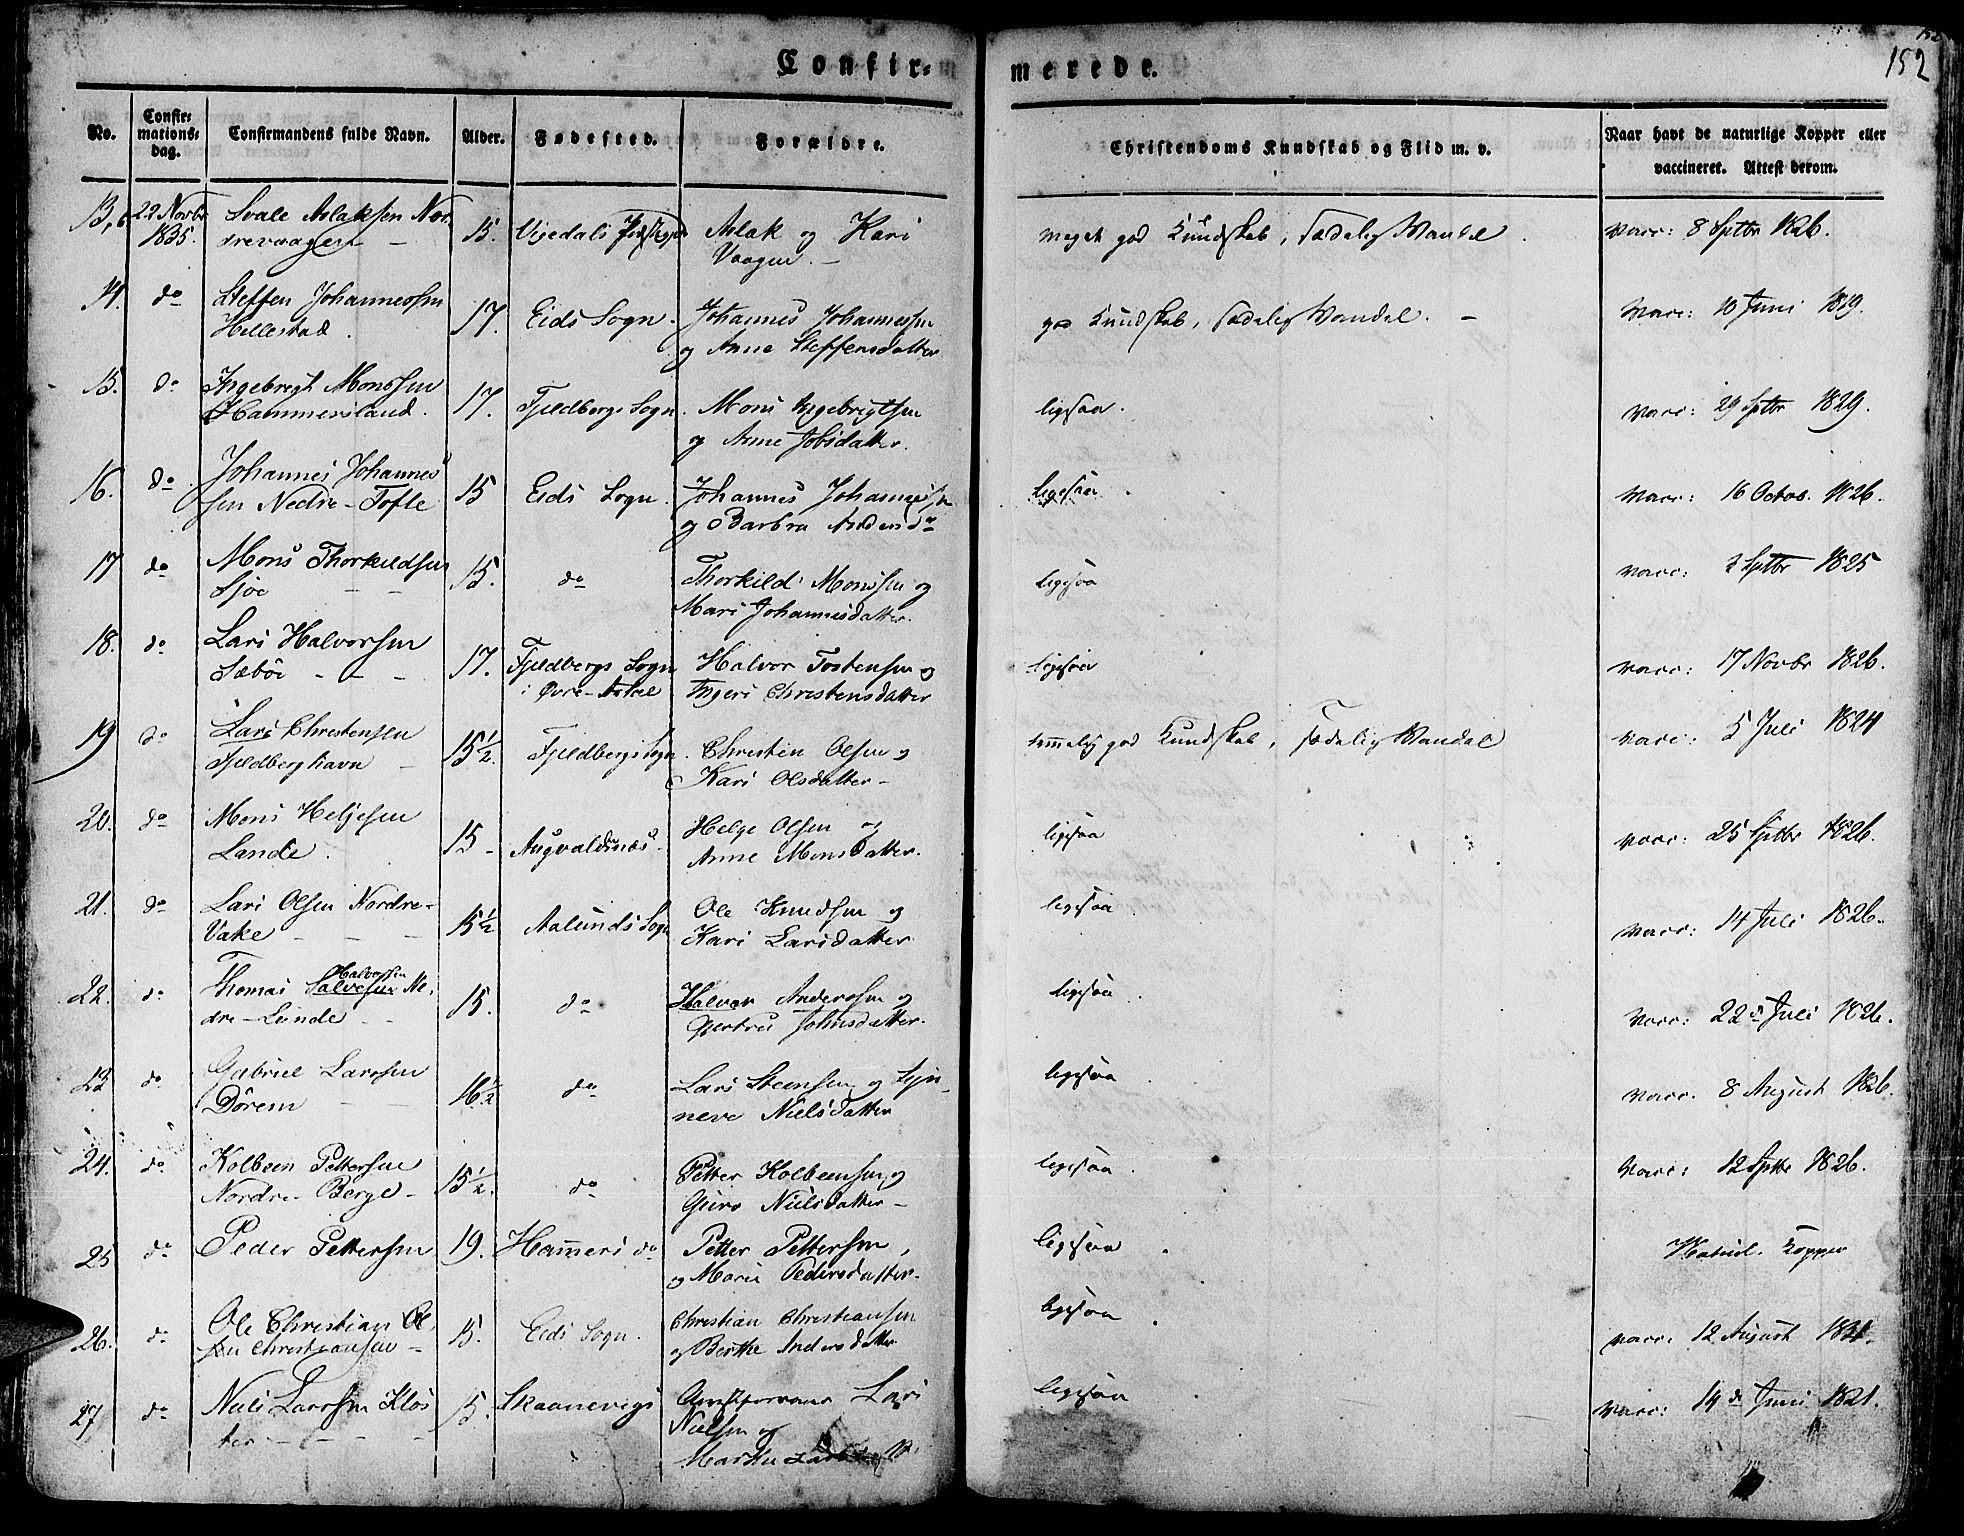 Confir=
merede.
152
No.
Confir=
mations=
dag.
Confirmandens fulde Navn.
Alder.
Fødested.
Forældre.
Christendoms Kundskab og Flid m. v.
Naar havt de naturlige Kopper eller
vaccineret. Attest derom.
13, 22 Novbr 1835. Svale Aslaksen Nor-
drevaagen - 15. Aslak og Kari
Vaagen. - meget god Kundskab, sædelig Vandel. vacc: 8 Sptbr 1826.
14. do Steffen Johannessen
Hellestad. 17. Eids Sogn. Johannes Johannessen
og Anne Steffensdatter god Kundskab, sædelig Vandel. - vacc: 10 Juni 1819.
15. do Ingebrigt Monssen
Hammersland. 17. Fjeldbergs Sogn. Mons Ingebrigtsen
og Anne Jobsdatter. ligesaa. vacc: 29 Sptbr 1829.
16. do. Johannes Johannes
sen Nedre-Tofte 15 Eids Sogn. Johannes Johannessen
og Barbra Andersdr ligesaa. vacc: 16 Octob. 1826.
17 do Mons Thorkildsen
Sjøe - - 15. do Thorkild Monssen og
Mari Johannesdatter. ligesaa vacc: 2 Sptbr 1825
18. do Lars Halvorsen
Sæbøe - - - 17. Fjeldbergs Sogn
i Øvre- Halvor Tostensen og
Ingeri Christensdatter ligesaa vacc: 17 Novbr 1826.
19 do Lars Christensen
Fjeldberghavn - 15 1/2. Fjeldbergs Sogn. Christen Olsen og
Kari Olsdatter - temmelig god Kundskab, sædelig Vandel vacc: 5 Juli 1824
20. do Mons Heljesen
Lande. 15 - Augvaldsnæs. Helge Olsen og
Anne Monsdatter. ligesaa vacc: 25 Sptbr 1826.
21. do Lars Olsen Nordre-
Vake - - - 15 1/2 Aalunds Sogn Ole Knudsen og
Kari Larsdatter ligesaa vacc: 14 Juli 1826.
22. do Thomas Salvesen Halvorsen Ne-
dre-Lunde - - 15. do Halvor Anderssen og
Gjertru Johnsdatter. ligesaa. vacc: 22d Juli 1826.
23 do Gabriel Larssen
Dörem - - 16 1/2 do Lars Steensen og Syn-
neve Nielsdatter ligesaa vacc. 8 August 1826.
24. do Kolbeen Pettersen
Nordre- Berge - 15 1/2. do Petter Kolbeensen og
Guro Nielsdatter - ligesaa. vacc: 12 Sptbr 1826.
25 do Peder Pettersen 19. Hammers do Petter Pettersen,
og Marie Pedersdatter. ligesaa. Naturl. Kopper
26. do Ole Christian Ol-
sen Christiansen - 15. Eids Sogn. Christian Christiansen
og Berthe Andersdatter ligesaa. vacc: 12 August 1821.
27 do Niels Larssen Klos
ter - - - - 15. Skaanevigs Lars
Nielsen og
Marthe ligesaa vacc: 14de Juni 1821.